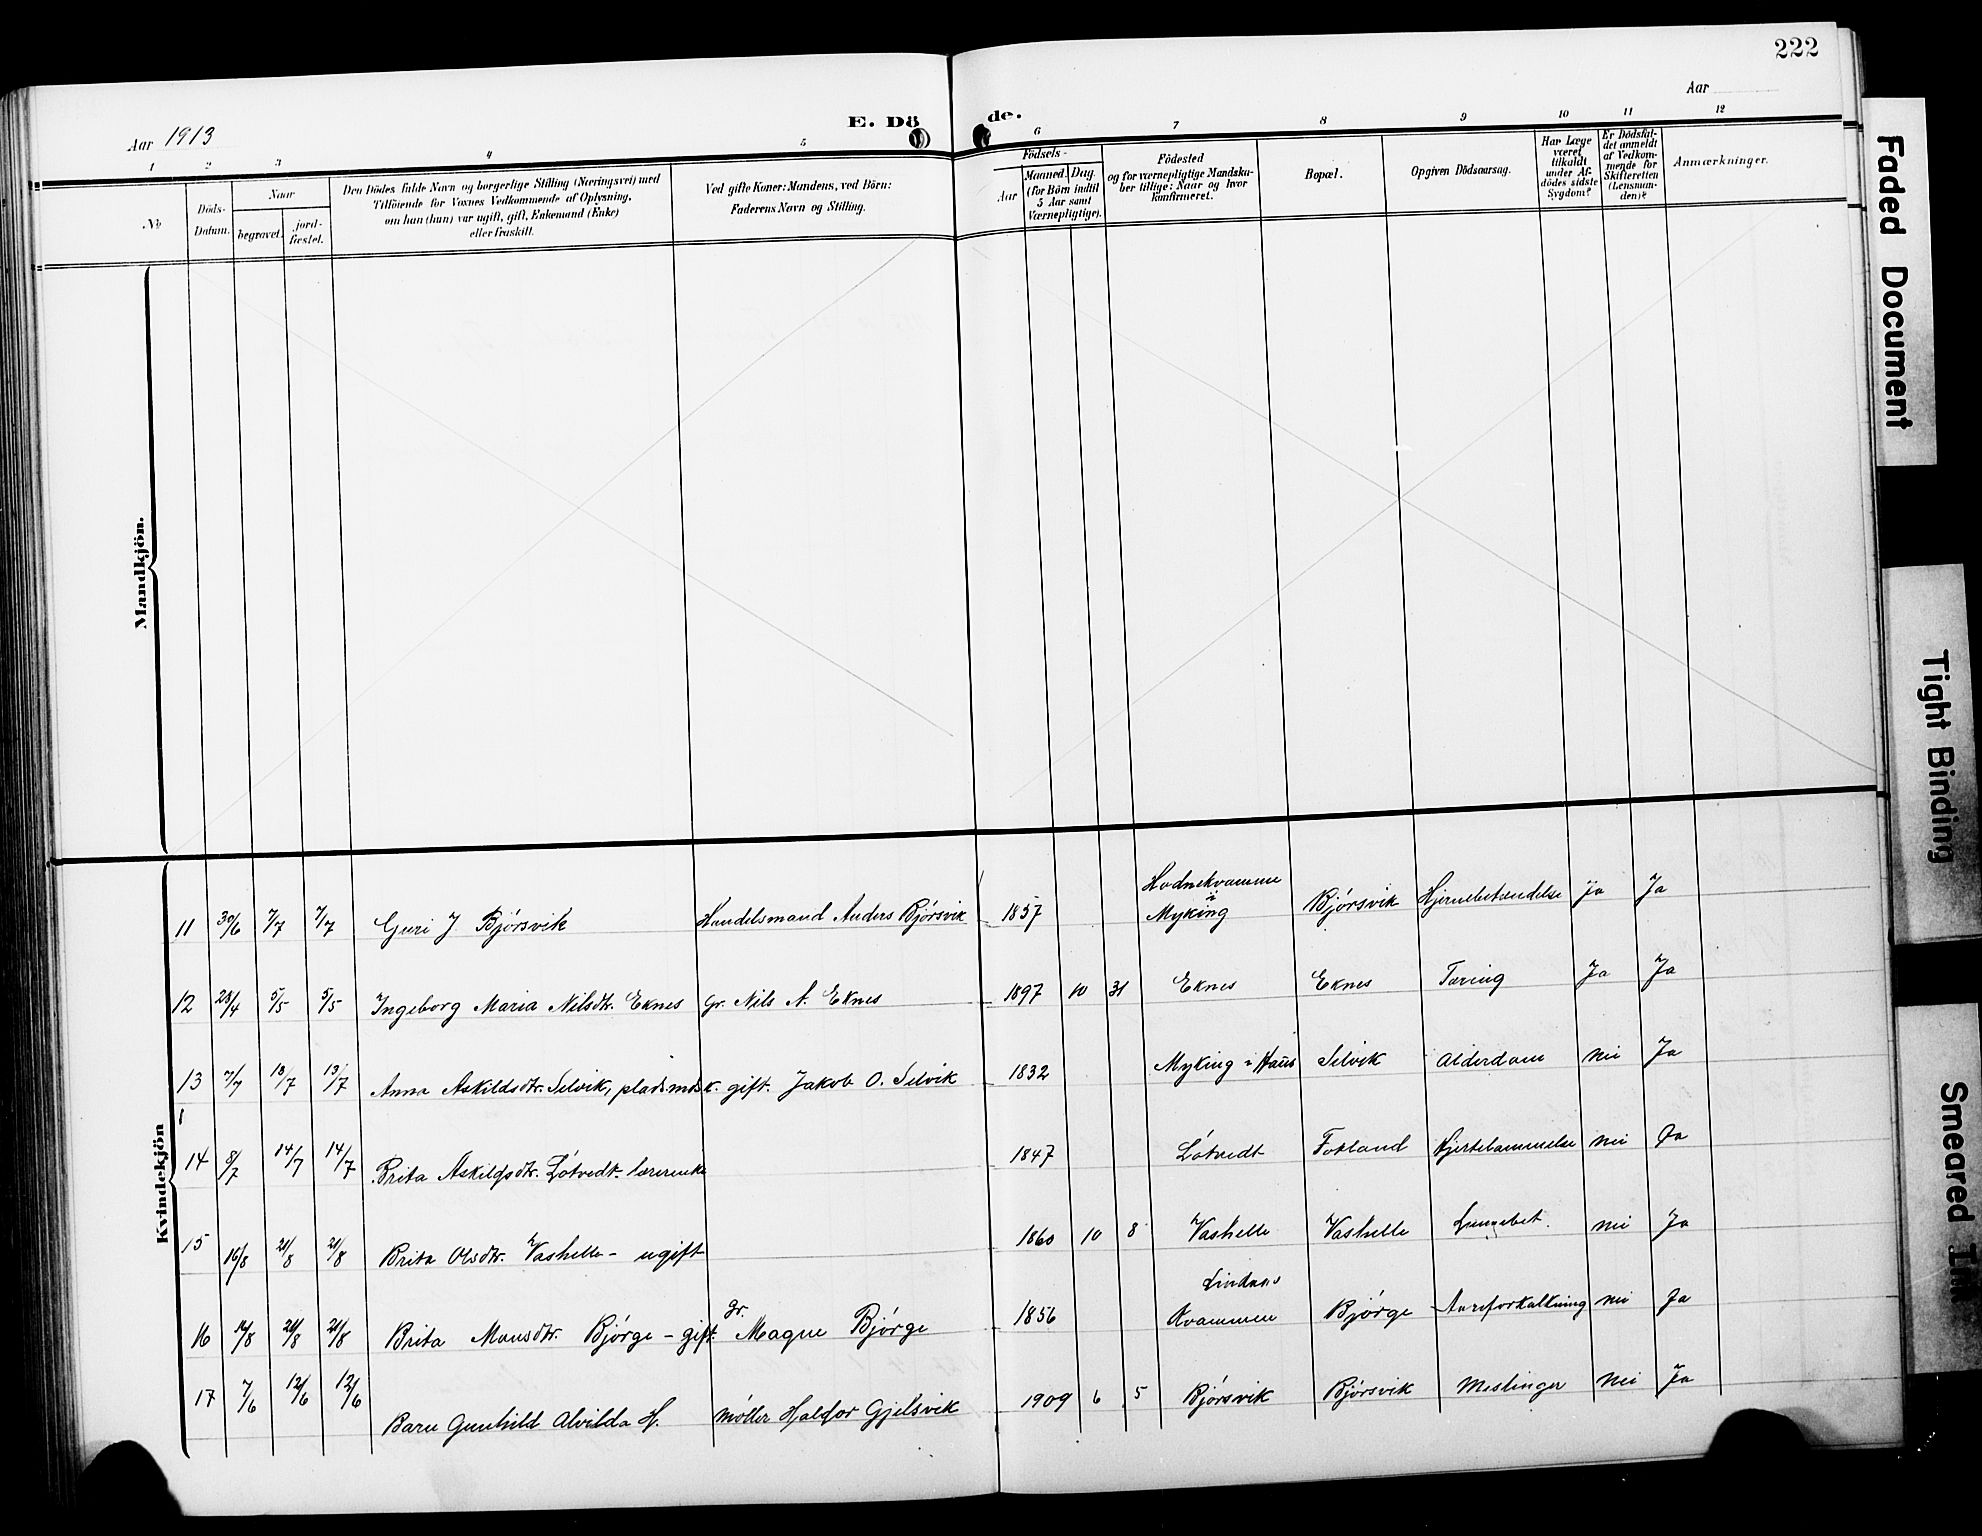 222
Aar
Aar 1913
E. Dö de.
1 2 3 4 5 6 7 8 9 10 11 12
No
Döds-
Datum.
Naar
begravet.
jord-
fæstet.
Den Dödes fulde Navn og borgerlige Stilling (Næringsvei) med
Tilföiende for Voxnes Vedkommende af Oplysning,
om han (hun) var ugift, gift, Enkemand (Enke)
eller fraskilt.
Ved gifte Koner: Mandens, ved Börn:
Faderens Navn og Stilling.
Födsels-
Aar
Maaned. Dag.
(for Börn indtil
5 Aar samt
Værnepligtige).
Födested
og for værnepligtige Mandska-
ber tillige: Naar og hvor
konfirmeret.
Bopæl.
Opgiven Dödsaarsag.
Har Læge
været
tilkaldt
under Af-
dödes sidste
Sygdom?
Er Dödsfal-
det anmeldt
af Vedkom-
mende for
Skifteretten
(Lensman-
den)?
Anmærkninger.
Mandkjön.
Kvindekjön
11 30/6 7/7 7/7 Guri J Bjórsvik Handelsmand Anders Bjórsvik 1857 Hodnekvamme i Myking Bjórsvik Hjernebetændelse Ja Ja
12 28/4 5/5 5/5 Ingeborg Maria Nilsdtr. Eknes Gr. Nils A. Eknes 1897 10 31 Eknes Eknes Tæring Ja Ja
13 7/7 13/7 13/7 Anna Askildsdtr. Selvik, pladsmdsk. gift. Jakob O. Selvik 1832 Myking i Haus Selvik Alderdom nei Ja
14 8/7 14/7 14/7 Brita Askildsdtr. Lótvedt lærerenke 1847 Lótvedt Fotland Hjertelammelse nei Ja
15 16/8 21/8 21/8 Brita Olsdtr. Vashelle - ugift 1860 10 8 Vashelle Vashelle Lungebet. nei Ja
16 16/8 21/8 21/8 Brita Monsdtr. Bjórge - gift. Gr. Magne Bjórge 1856 Lindaas Kvammen Bjórge Aareforkalkning nei Ja
17 7/6 12/6 12/6 Barn Gunhild Alvilda H. Móller Haldor Gjelsvik 1909 6 5 Bjórsvik Bjórsvik Meslinger nei Ja
Faded Document
Tight Binding
Smeared Ink